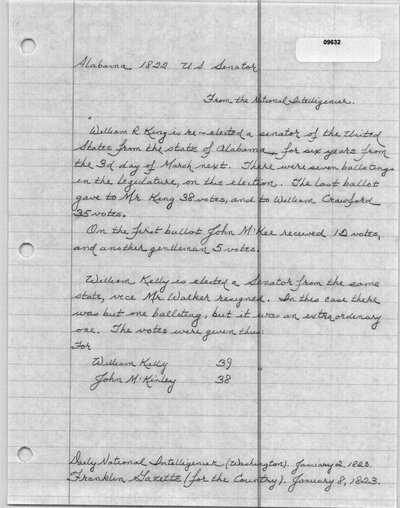 09632
Alabama 1822 U S Senator
From the National Intelligencer.
"William R King is re-elected a senator of the United
States from the state of Alabama, for six years from
the 3d day of March next. There were seven ballotings
in the legislature, on this election. The last ballot
gave to Mr King 38 votes, and to William Crawford
35 votes.
On the first ballot John M'Kee received 12 votes,
and another gentleman 5 votes.
William Kelly is elected a Senator from the same
state, vice Mr. Walker resigned. In this case there
was but one balloting, but it was an extraordinary
one. The votes were given thus:
For
William Kelly 39
John M'Kinley 38 "
Daily National Intelligencer (Washington). January 2, 1823.
Franklin Gazette (for the Country). January 8, 1823.